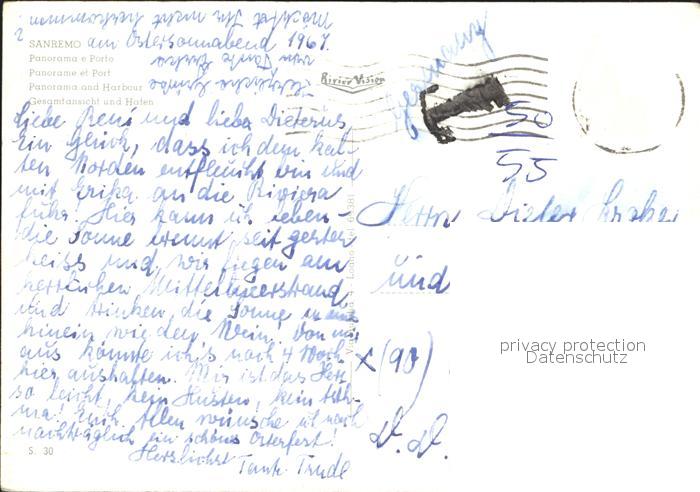 SANREMO am Ostersonnabend 1967.
Panorama e Porto
Panorame et Port
Panorama and Harbour
Gesamtansicht und Hafen
Liebe Reni und lieber Dieter
ein Glück, dass ich dem kal-
ten Norden entfleucht bin und
mit Erika an die Riviera
fuhr! Hier kann ich leben -
die Sonne brennt seit gestern
heiss und wir liegen am
herrlichen Mittelmeerstrand
und trinken die Sonne in uns
hinein wie den Wein! Von mir
aus könnte ich's noch 4 Woch.
hier aushalten. Mir ist das Herz
so leicht, kein Husten, kein Asth-
ma! Euch allen wünsche ich noch
nachträglich ein schönes Osterfest!
Herzlichst Tante Trude
S. 30
möchtet Ihr nicht herkommen?
Herzliche Grüße
von Tante Erika
Rivier Vision
Germany
50
55
Herrn Dieter
und
x (90)
V. V.
privacy protection
Datenschutz